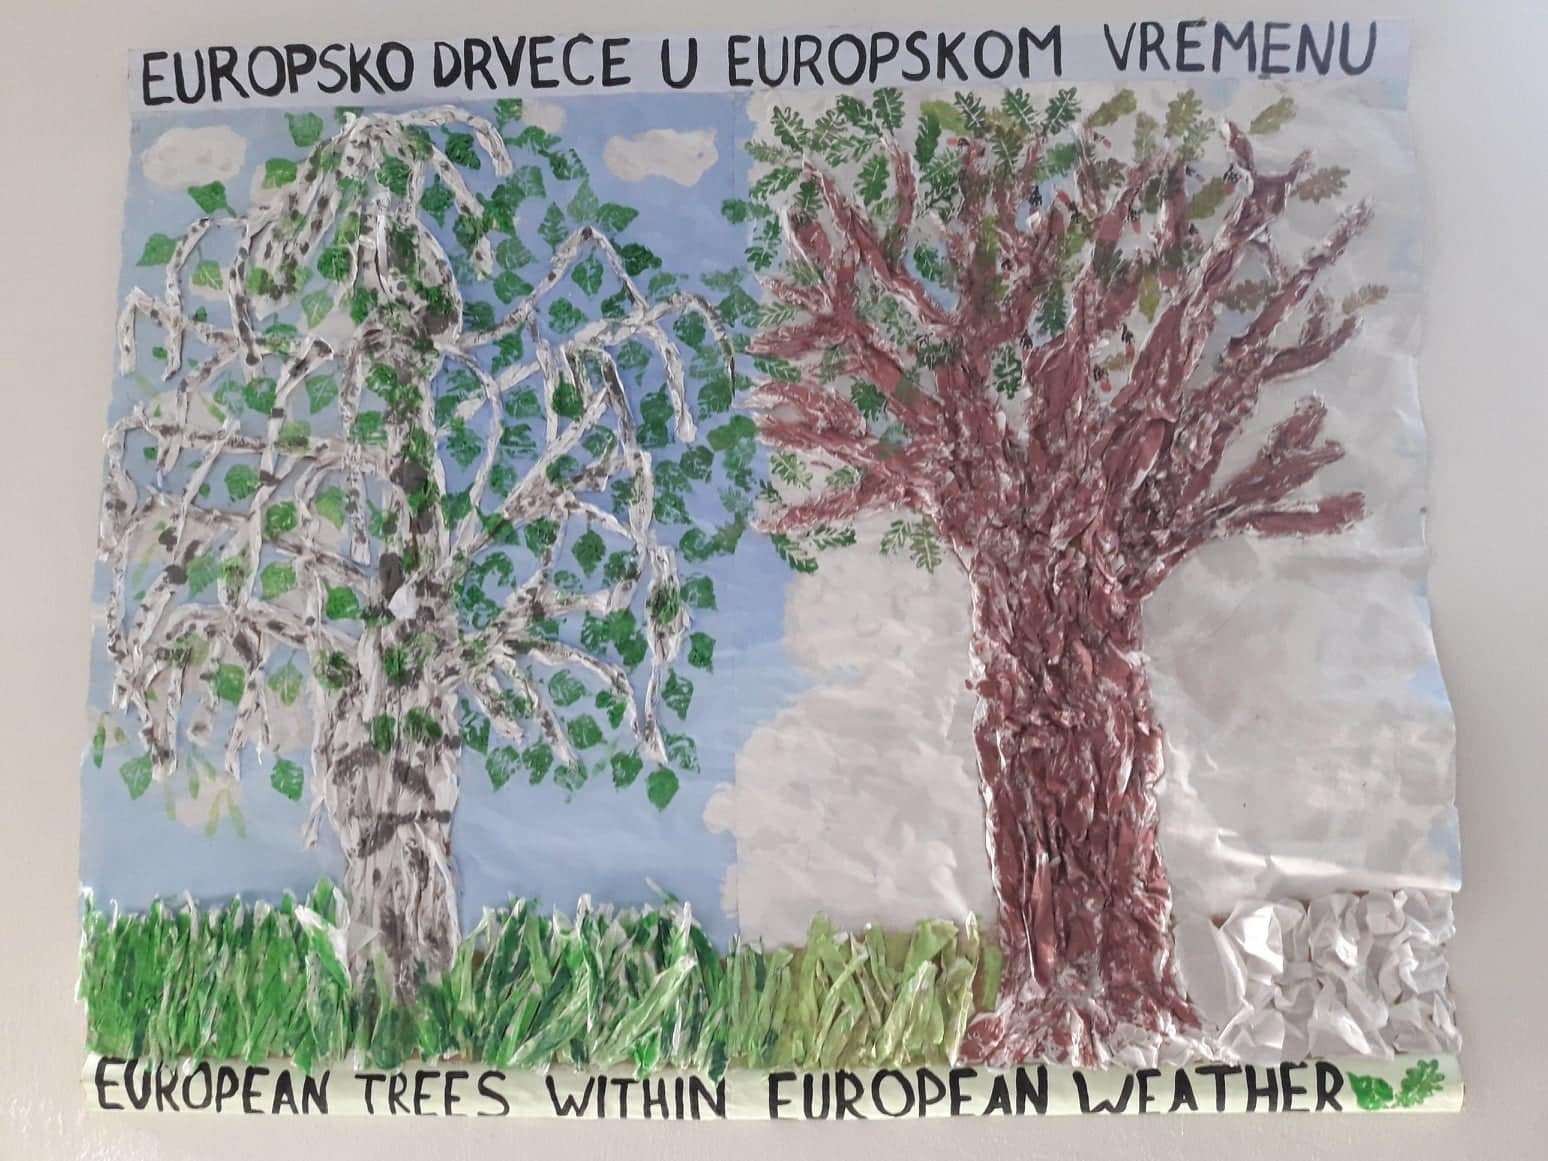 EUROPSKO DRVEĆE U EUROPSKOM VREMENU
EUROPEAN TREES WITHIN EUROPEAN WEATHER